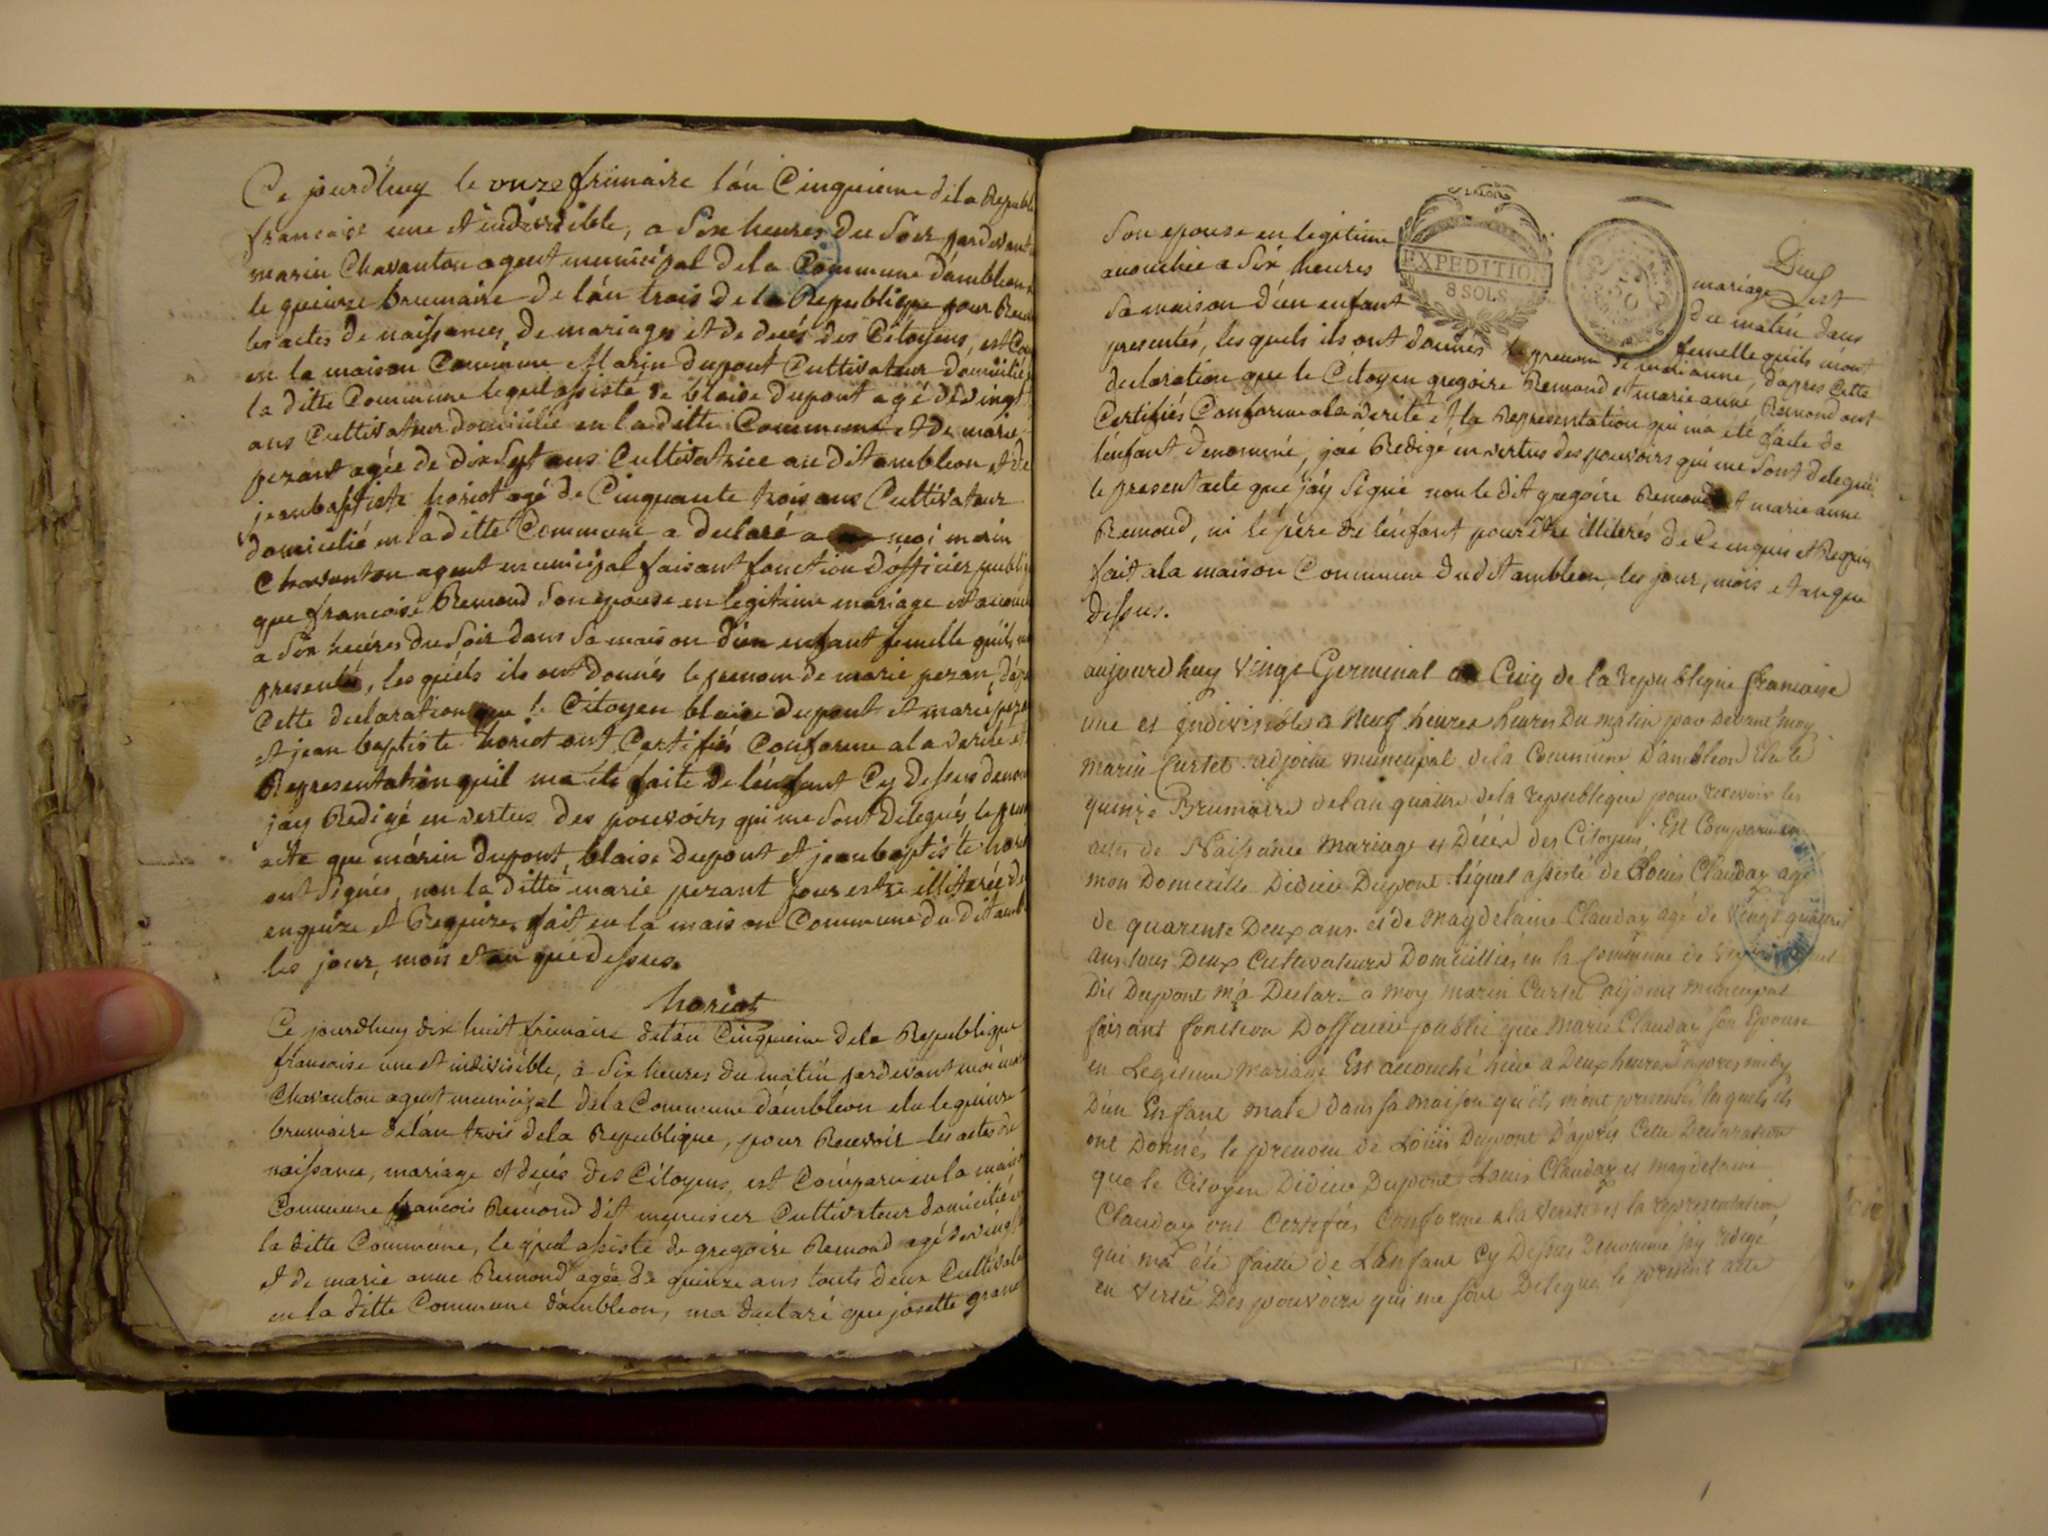 Ce jourdhuy le onze frimaire l'an Cinquieme dela Republi
francaise une et indivisible, a Six heures du Soir pardevant
marin Chavanton agent municipal dela Commune d'ambleon
le quinze brumaire de l'an trois de la Republique pour Rece
les actes de naissances, de mariages et de decés des Citoyens, est Com
en la maison Commune Marin dupont Cultivateur domicilié
la ditte Commune lequel assisté de blaise dupont agé de vingt
ans Cultivateur domicilié en la ditte Commune et de marie
pezant agée de dix Sept ans Cultivatrice au dit ambleon et de
jeanbaptiste horiot agé de Cinquante trois ans Cultivateur
domicilié en la ditte Commune a declaré a moi marin
Chavanton agent municipal faisant fonction d'officier publi
que francoise Remond Son epouse en legitime mariage est acouc
a Six heures du Soir dans Sa maison d'un enfant femelle quils
presenté, les quels ils ont donnés le prenom de marie pezan, d'ap
Cette declaration que le Citoyen blaise dupont et marie peza
et jean baptiste horiot ont Certifiés Conforme a la verité et
Representation quil ma été faite de l'enfant Cy dessus denom
jay Redigé en vertus des pouvoirs qui me Sont delegués le prese
acte que marin dupont, blaise dupont et jeanbaptiste hori
ont Signés, non la ditte marie pezant pour estre illiterée de
enquize et Requize, fait en la maison Commune du dit amb
les jour, mois et an que dessus.
horiot
Ce jourdhuy dix huit frimaire de l'an Cinquieme dela Republique
francaise une et indivisible, à Six heures du matin pardevant moi mar
Chavanton agent municipal dela Commune d'ambleon elu le quinze
brumaire de l'an trois dela Republique, pour Recevoir les actes de
naissance, mariage et decés des Citoyens, est Comparu en la mais
Commune francois Remond dit menuisier Cultivateur domicilié e
la ditte Commune, lequel assisté de gregoire Remond agé de vingt
et de marie anne Remond agée de quinze ans touts deux Cultivat
en la ditte Commune d'ambleon, ma declaré que josette
Son epouse en legitime mariage est
acouchée a Six heures du matin dans
Sa maison d'un enfant femelle quils mont
presentés, les quels ils ont donnés le prenom de marianne, d'apres Cette
declaration que le Citoyen gregoire Remond et marie anne Remond ont
Certifiés Conforme a la verité et la Representation qui ma eté faite de
l'enfant denommé, jai Redigé en vertus des pouvoirs qui me Sont delegué
le present acte que jáy Signé non le dit gregoire Remond et marie anne
Remond, ni le pere de l'enfant pour être illiterés de Ce enquis et Requis
fait a la maison Commune du dit ambleon, les jour, mois et an que
dessus.
EXPEDITION
8 SOLS
aujourdhuy vingt Germinal an Cinq de la republique francaise
une et indivisible a Neuf heures heures Du matin par Devant moy
Marin Curtet adjoint municipal de la Commune D'ambleon Elu le
quinze Brumaire de l'an quatre de la republique pour recevoir les
actes de Naissance Mariage et Décés des Citoyens, Est Comparu en
mon Domicille Didier Dupont lequel assisté de Louis Clauday agé
de quarente Deux ans et de Magdelaine Clauday agé de Vingt quatre
ans tous Deux Cultivateurs Domicilliés en la Commune de
Dit Dupont M'a Declaré a moy Marin Curtet adjoint municipal
faisant fonction D'officier public que Marie Clauday son Epouse
en Legitime Mariage Est acouché hier a Deux heures apres midy
D'un Enfant male dans sa Maison qu'ils m'ont presentés les quels ils
ont Donnés le prenom de Loüis Dupont D'apres Cette Declaration
que le Citoyen Didier Dupont Louis Clauday et Magdelaine
Clauday ont Certifiés Conforme a la Verité et la representation
qui ma été faitte de L'Enfant Cy Dessus Denommé j'ay redigé
en vertu Des pouvoirs qui me sont Delegués le present acte